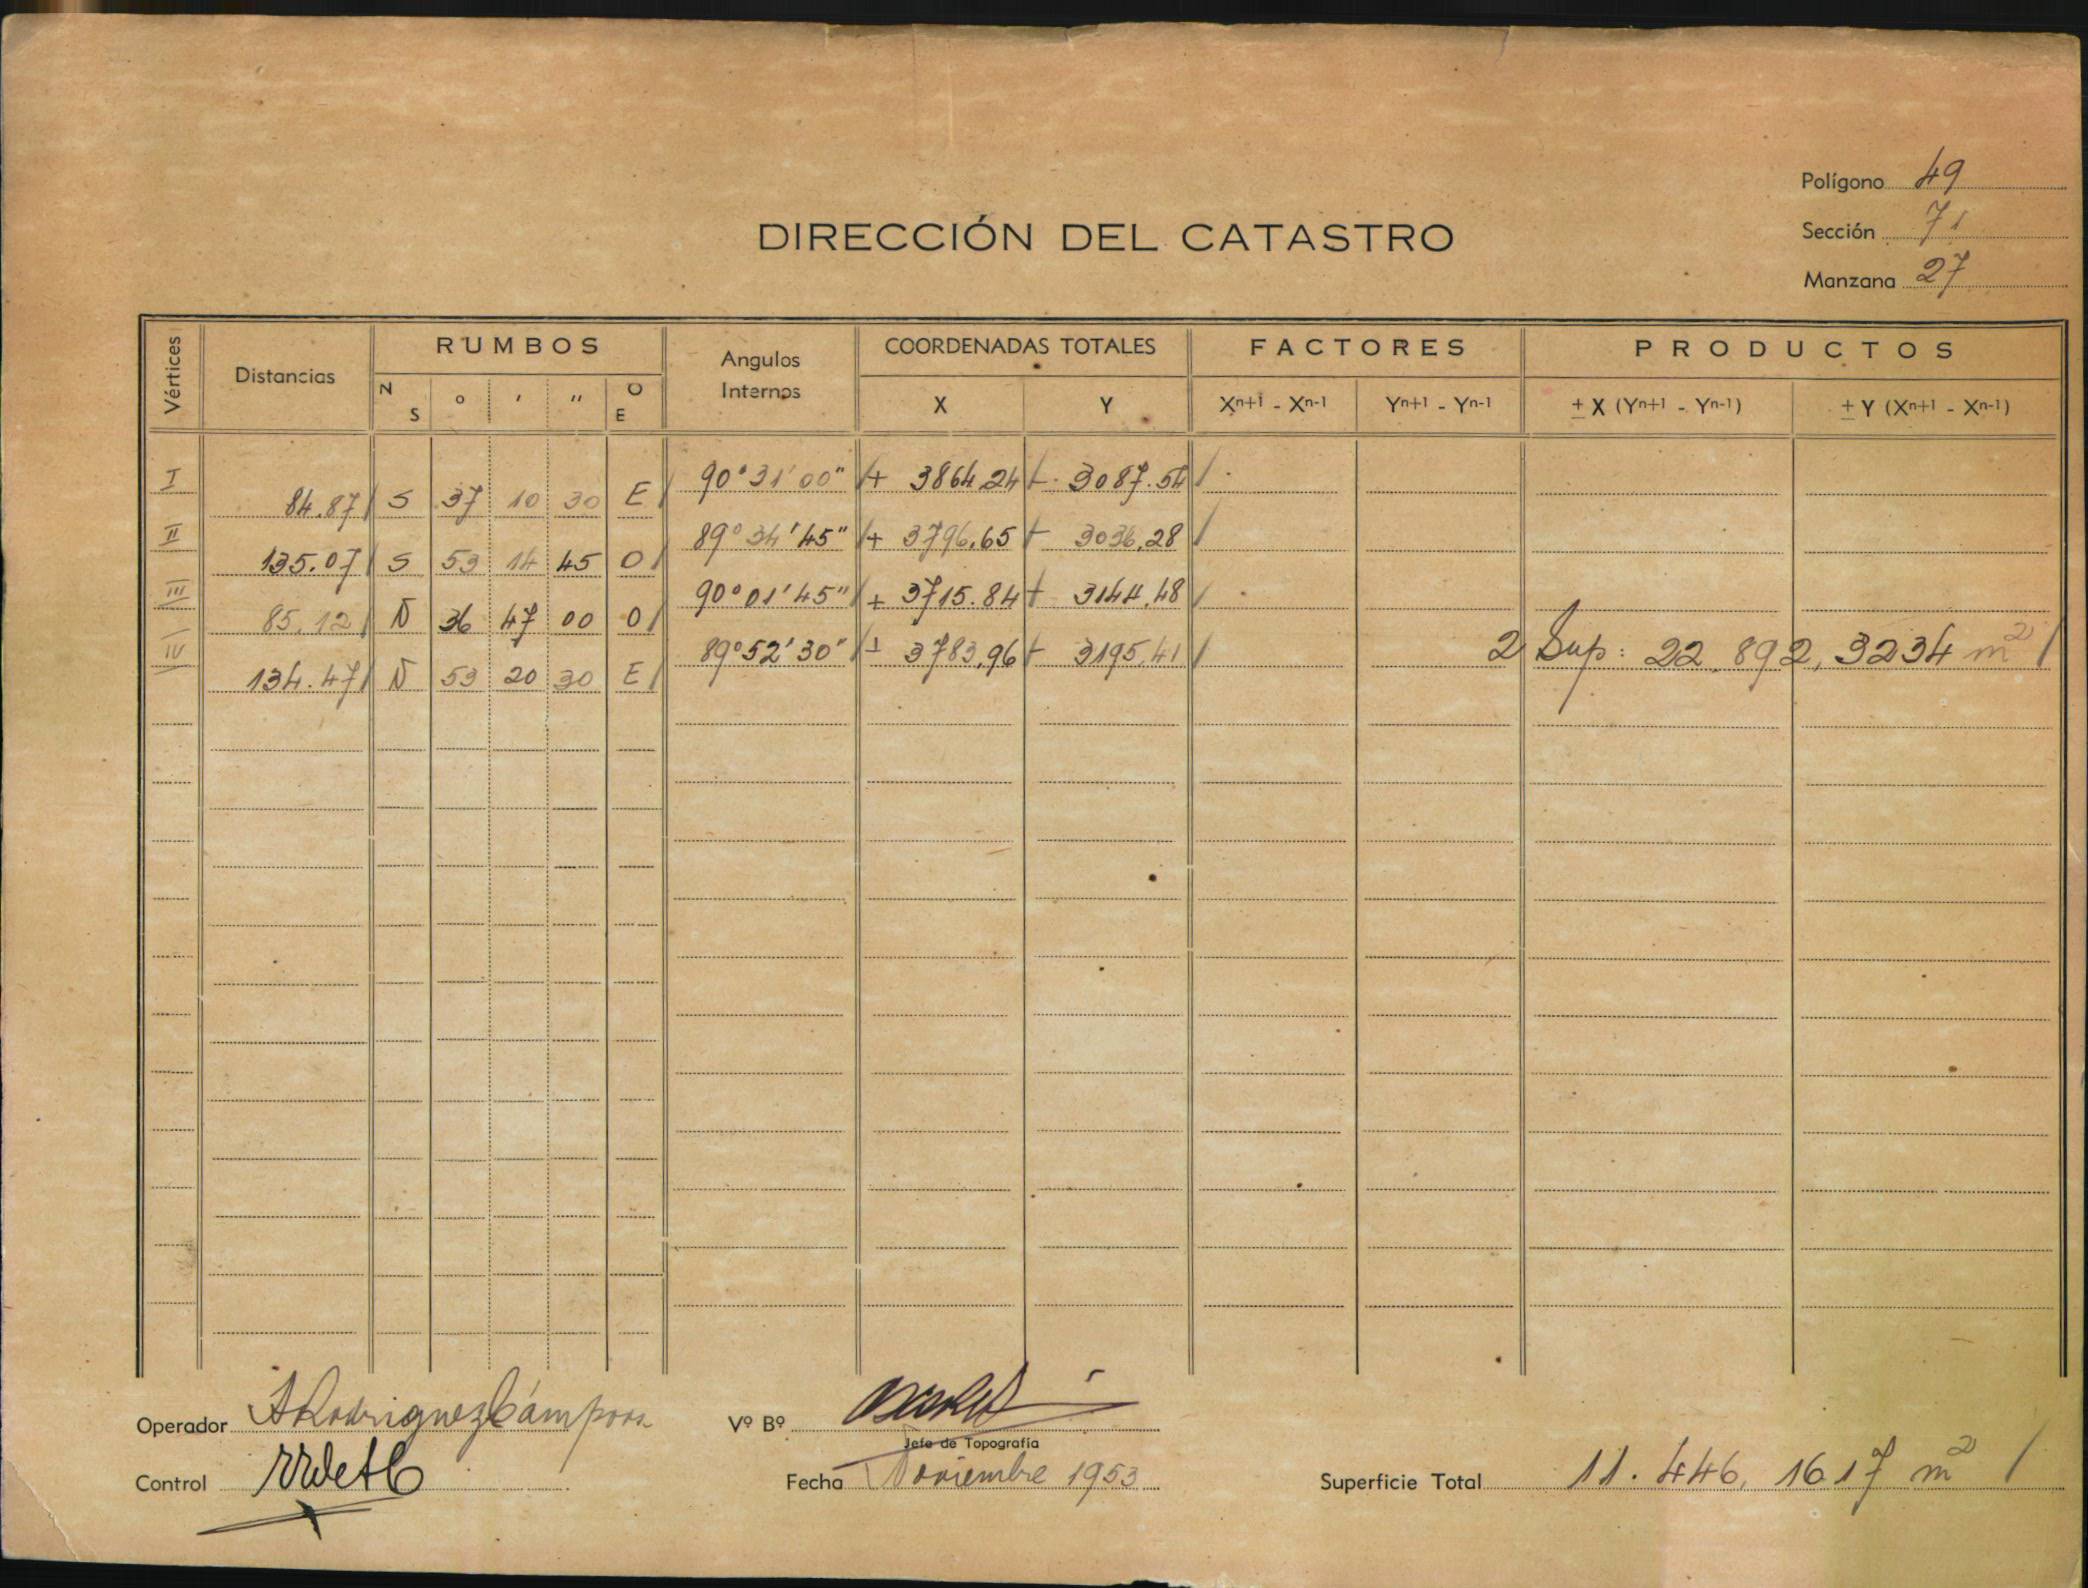 Polígono 49
DIRECCIÓN DEL CATASTRO
Sección 71
Manzana 27
Vértices Distancias RUMBOS Angulos Internos COORDENADAS TOTALES FACTORES PRODUCTOS
N S ° ' " O E X Y Xn+1 - Xn-1 Yn+1 - Yn-1 ± X (Yn+1 - Yn-1) ± Y (Xn+1 - Xn-1)
I 90°31'00" + 3864.24 + 3087.54
84.87 S 37 10 30 E
II 89°34'45" + 3796,65 + 3036,28
135.07 S 53 14 45 O
III 90°01'45" + 3715.84 + 3144,48
85,12 N 36 47 00 O
IV 89°52'30" + 3783,96 + 3195,41 2 Sup: 22.892,3234 m2
134.47 N 53 20 30 E
Operador ARodriguezCámpora Vº Bº
Jefe de Topografía
Control Fecha Noviembre 1953 Superficie Total 11.446,1617 m2